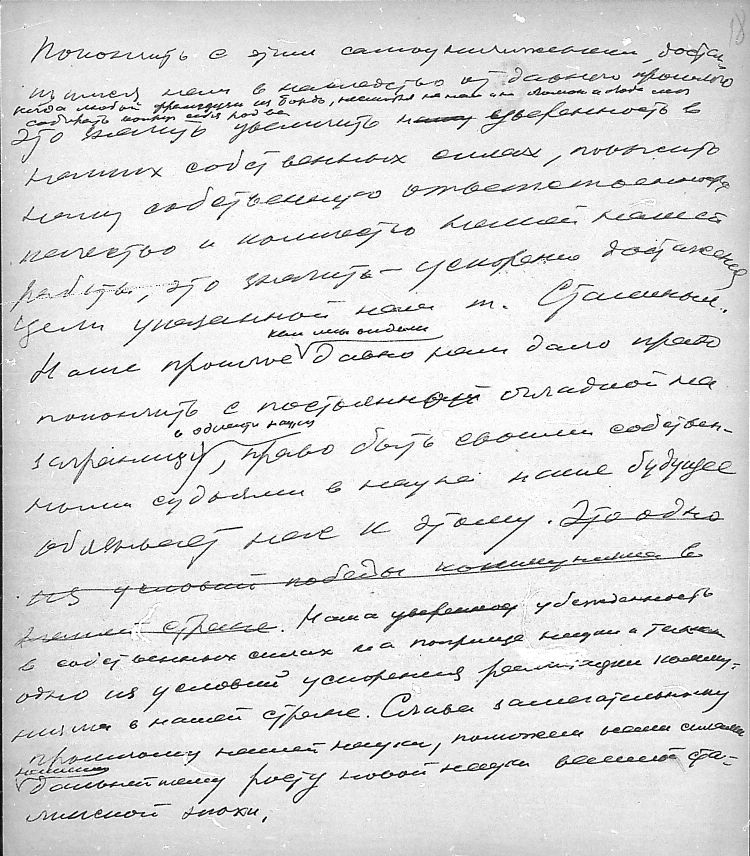 18
Покончить с этим самоунижением, доста-
вшимся нам в наследство от давнего прошлого
когда любой французик из Бордо,
собирать вокруг себя род веча
Это значить увеличить нашу уверенность в
наших собственных силах, повысить
нашу собственную ответственность
качество и количество нашей
работы, это значить – ускорение достижения
цели указанной нам т. Сталиным.
как мы видели
Наше прошлое давно нам дало право
покончить с постоянной оглядкой на
в области науки
заграницу, право быть своими собствен-
ными судьями в науке наше будущее
обязывает нас к этому. Это одно
из условий победы коммунизма в
нашей стране. Наша уверенность убежденность
в собственных силах на поприще науки а также
одно из условий ускорения реализации комму-
низма в нашей стране. Слава замечательному
прошлому нашей науки, поможем всеми силами
дальнейшему росту новой науки великой ста-
линской эпохи.